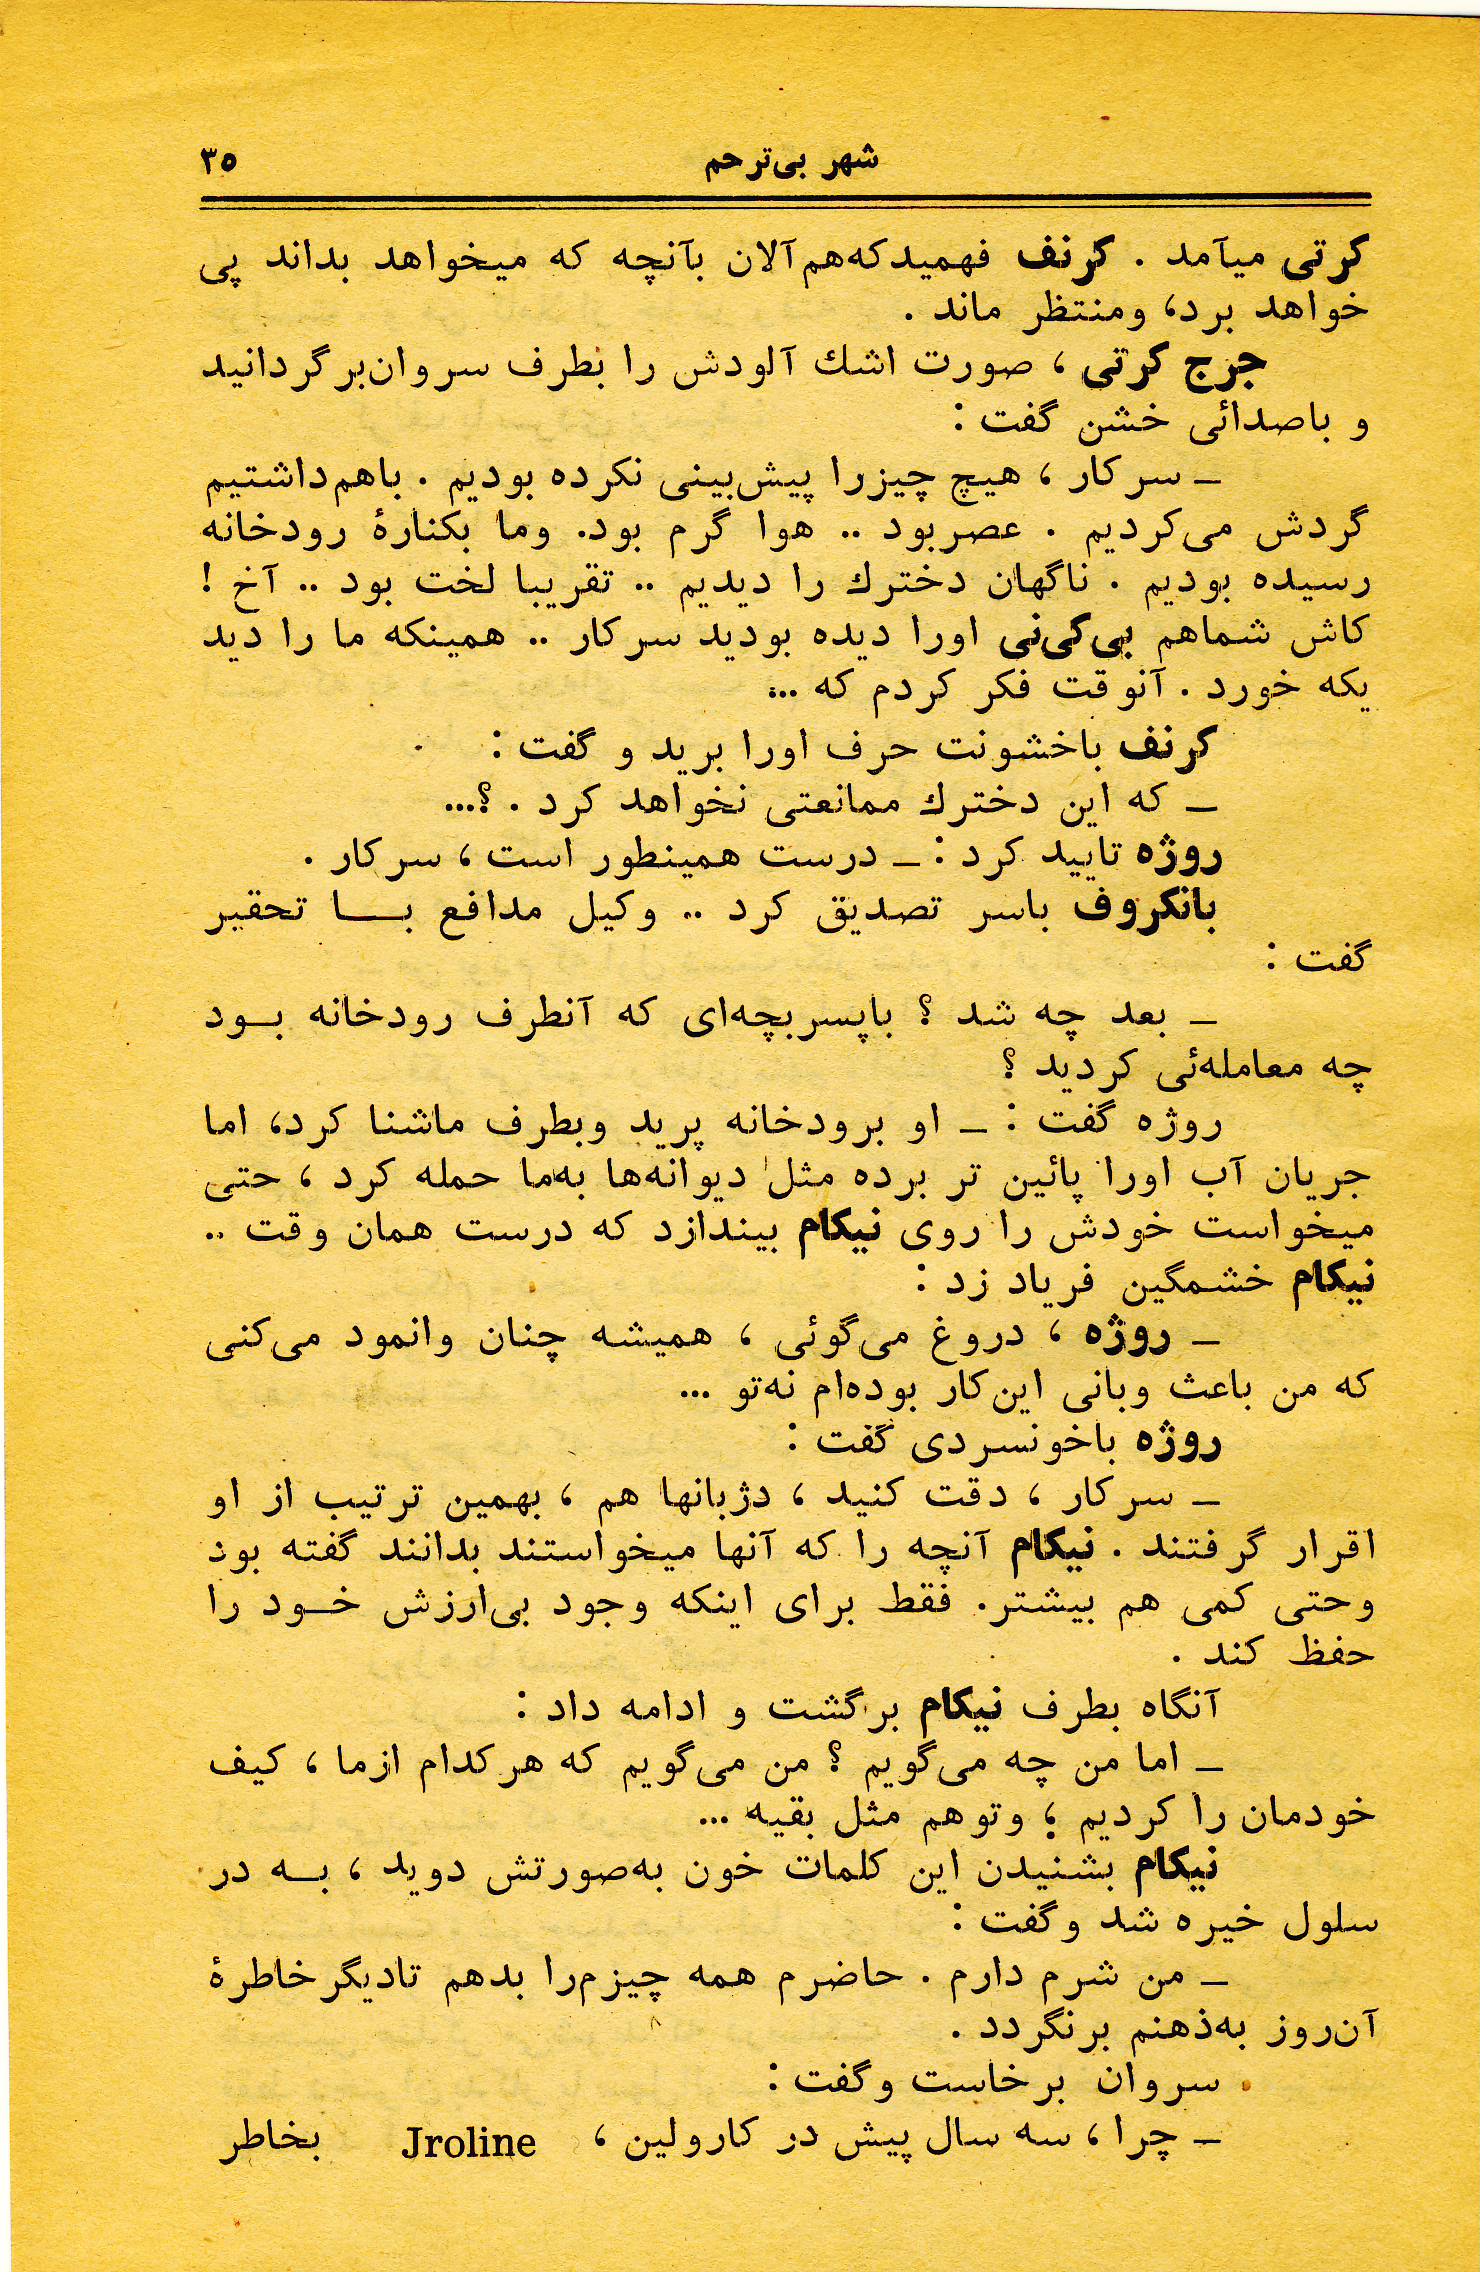 شهر بی‌ترحم ۳۵
کرتی میآمد . کرنف فهمیدکه‌هم‌آلان بآنچه که میخواهد بداند پی
خواهد برد، ومنتظر ماند .
جرج کرتی ، صورت اشك آلودش را بطرف سروان‌برگردانید
و باصدائی خشن گفت :
ـ سرکار ، هیچ چیزرا پیش‌بینی نکرده بودیم . باهم‌داشتیم
گردش می‌کردیم . عصربود .. هوا گرم بود. وما بکنارهٔ رودخانه
رسیده بودیم . ناگهان دخترك را دیدیم .. تقریبا لخت بود .. آخ !
کاش شماهم بی‌کی‌نی اورا دیده بودید سرکار .. همینکه ما را دید
یکه خورد . آنوقت فکر کردم که ...
کرنف باخشونت حرف اورا برید و گفت :
ـ که این دخترك ممانعتی نخواهد کرد . ؟...
روژه تایید کرد : ـ درست همینطور است ، سرکار .
بانکروف باسر تصدیق کرد .. وکیل مدافع بـــا تحقیر
گفت :
ـ بعد چه شد ؟ باپسربچه‌ای که آنطرف رودخانه بــود
چه معامله‌ئی کردید ؟
روژه گفت : ـ او برودخانه پرید وبطرف ماشنا کرد، اما
جریان آب اورا پائین تر برده مثل دیوانه‌ها به‌ما حمله کرد ، حتی
میخواست خودش را روی نیکام بیندازد که درست همان وقت ..
نیکام خشمگین فریاد زد :
ـ روژه ، دروغ می‌گوئی ، همیشه چنان وانمود می‌کنی
که من باعث وبانی این‌کار بوده‌ام نه‌تو ...
روژه باخونسردی گفت :
ـ سرکار ، دقت کنید ، دژبانها هم ، بهمین ترتیب از او
اقرار گرفتند . نیکام آنچه را که آنها میخواستند بدانند گفته بود
وحتی کمی هم بیشتر. فقط برای اینکه وجود بی‌ارزش خــود را
حفظ کند .
آنگاه بطرف نیکام برگشت و ادامه داد :
ـ اما من چه می‌گویم ؟ من می‌گویم که هرکدام ازما ، کیف
خودمان را کردیم ؛ وتوهم مثل بقیه ...
نیکام بشنیدن این کلمات خون به‌صورتش دوید ، بــه در
سلول خیره شد وگفت :
ـ من شرم دارم . حاضرم همه چیزم‌را بدهم تادیگرخاطرهٔ
آن‌روز به‌ذهنم برنگردد .
سروان برخاست وگفت :
ـ چرا ، سه سال پیش در کارولین ، Jroline بخاطر